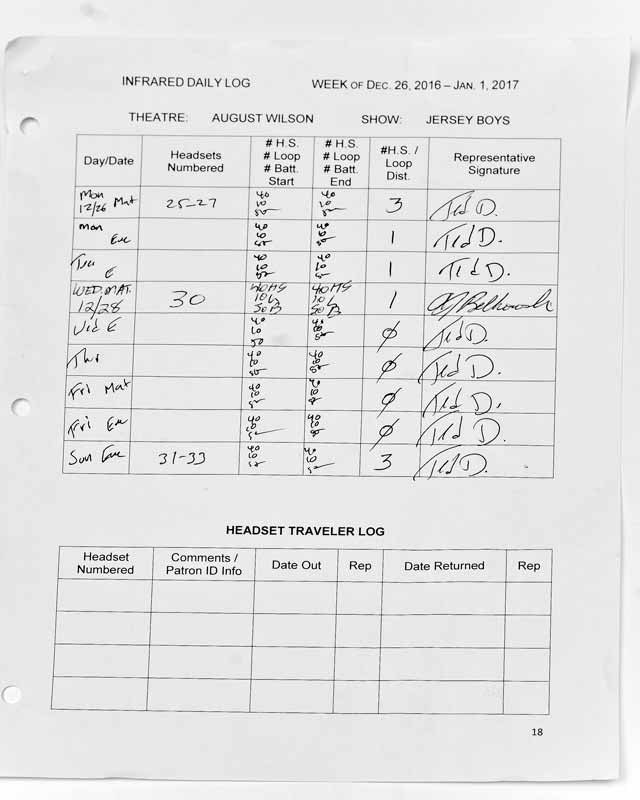 INFRARED DAILY LOG WEEK OF DEC. 26, 2016 – JAN. 1, 2017
THEATRE: AUGUST WILSON SHOW: JERSEY BOYS
Day/Date Headsets Numbered # H.S. # Loop # Batt. Start # H.S. # Loop # Batt. End #H.S. / Loop Dist. Representative Signature
Mon 12/26 Mat 25-27 40 10 50 40 10 50 3 Ted D.
Mon Eve 40 10 50 40 10 50 1 Ted D.
Tue E 40 10 50 40 10 50 1 Ted D.
WED. MAT. 12/28 30 40HS 10L 50B 40HS 10L 50B 1
Wed E 40 10 50 40 10 50 Ø Ted D.
Thu 40 10 50 40 10 50 Ø Ted D.
Fri Mat 40 10 50 10 Ø Ted D.
Fri Eve 40 10 50 40 10 Ø Ted D.
Sun Eve 31-33 40 10 50 40 10 50 3 Ted D.
HEADSET TRAVELER LOG
Headset Numbered Comments / Patron ID Info Date Out Rep Date Returned Rep
18